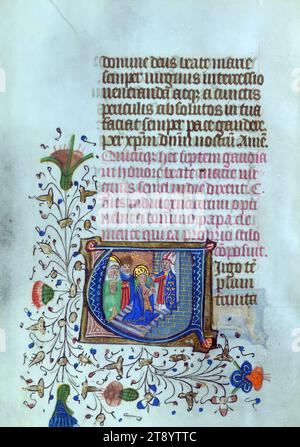 domine deus beate marie
semper virginis intercessio
veneranda atqz a cunctis
periculis absolutos in tua
faciat semper pace gaudere.
per xp̄m dn̄m nostrū Ame̅.
Quicūqz hec septem gaudia
in honore beate marie vir
ginis semel in die dixerit C
dies indulgentiarum opti
nebit a domino papa cle
mente qui ea proprio stilo
composuit
Virgo tē
plum
trinita